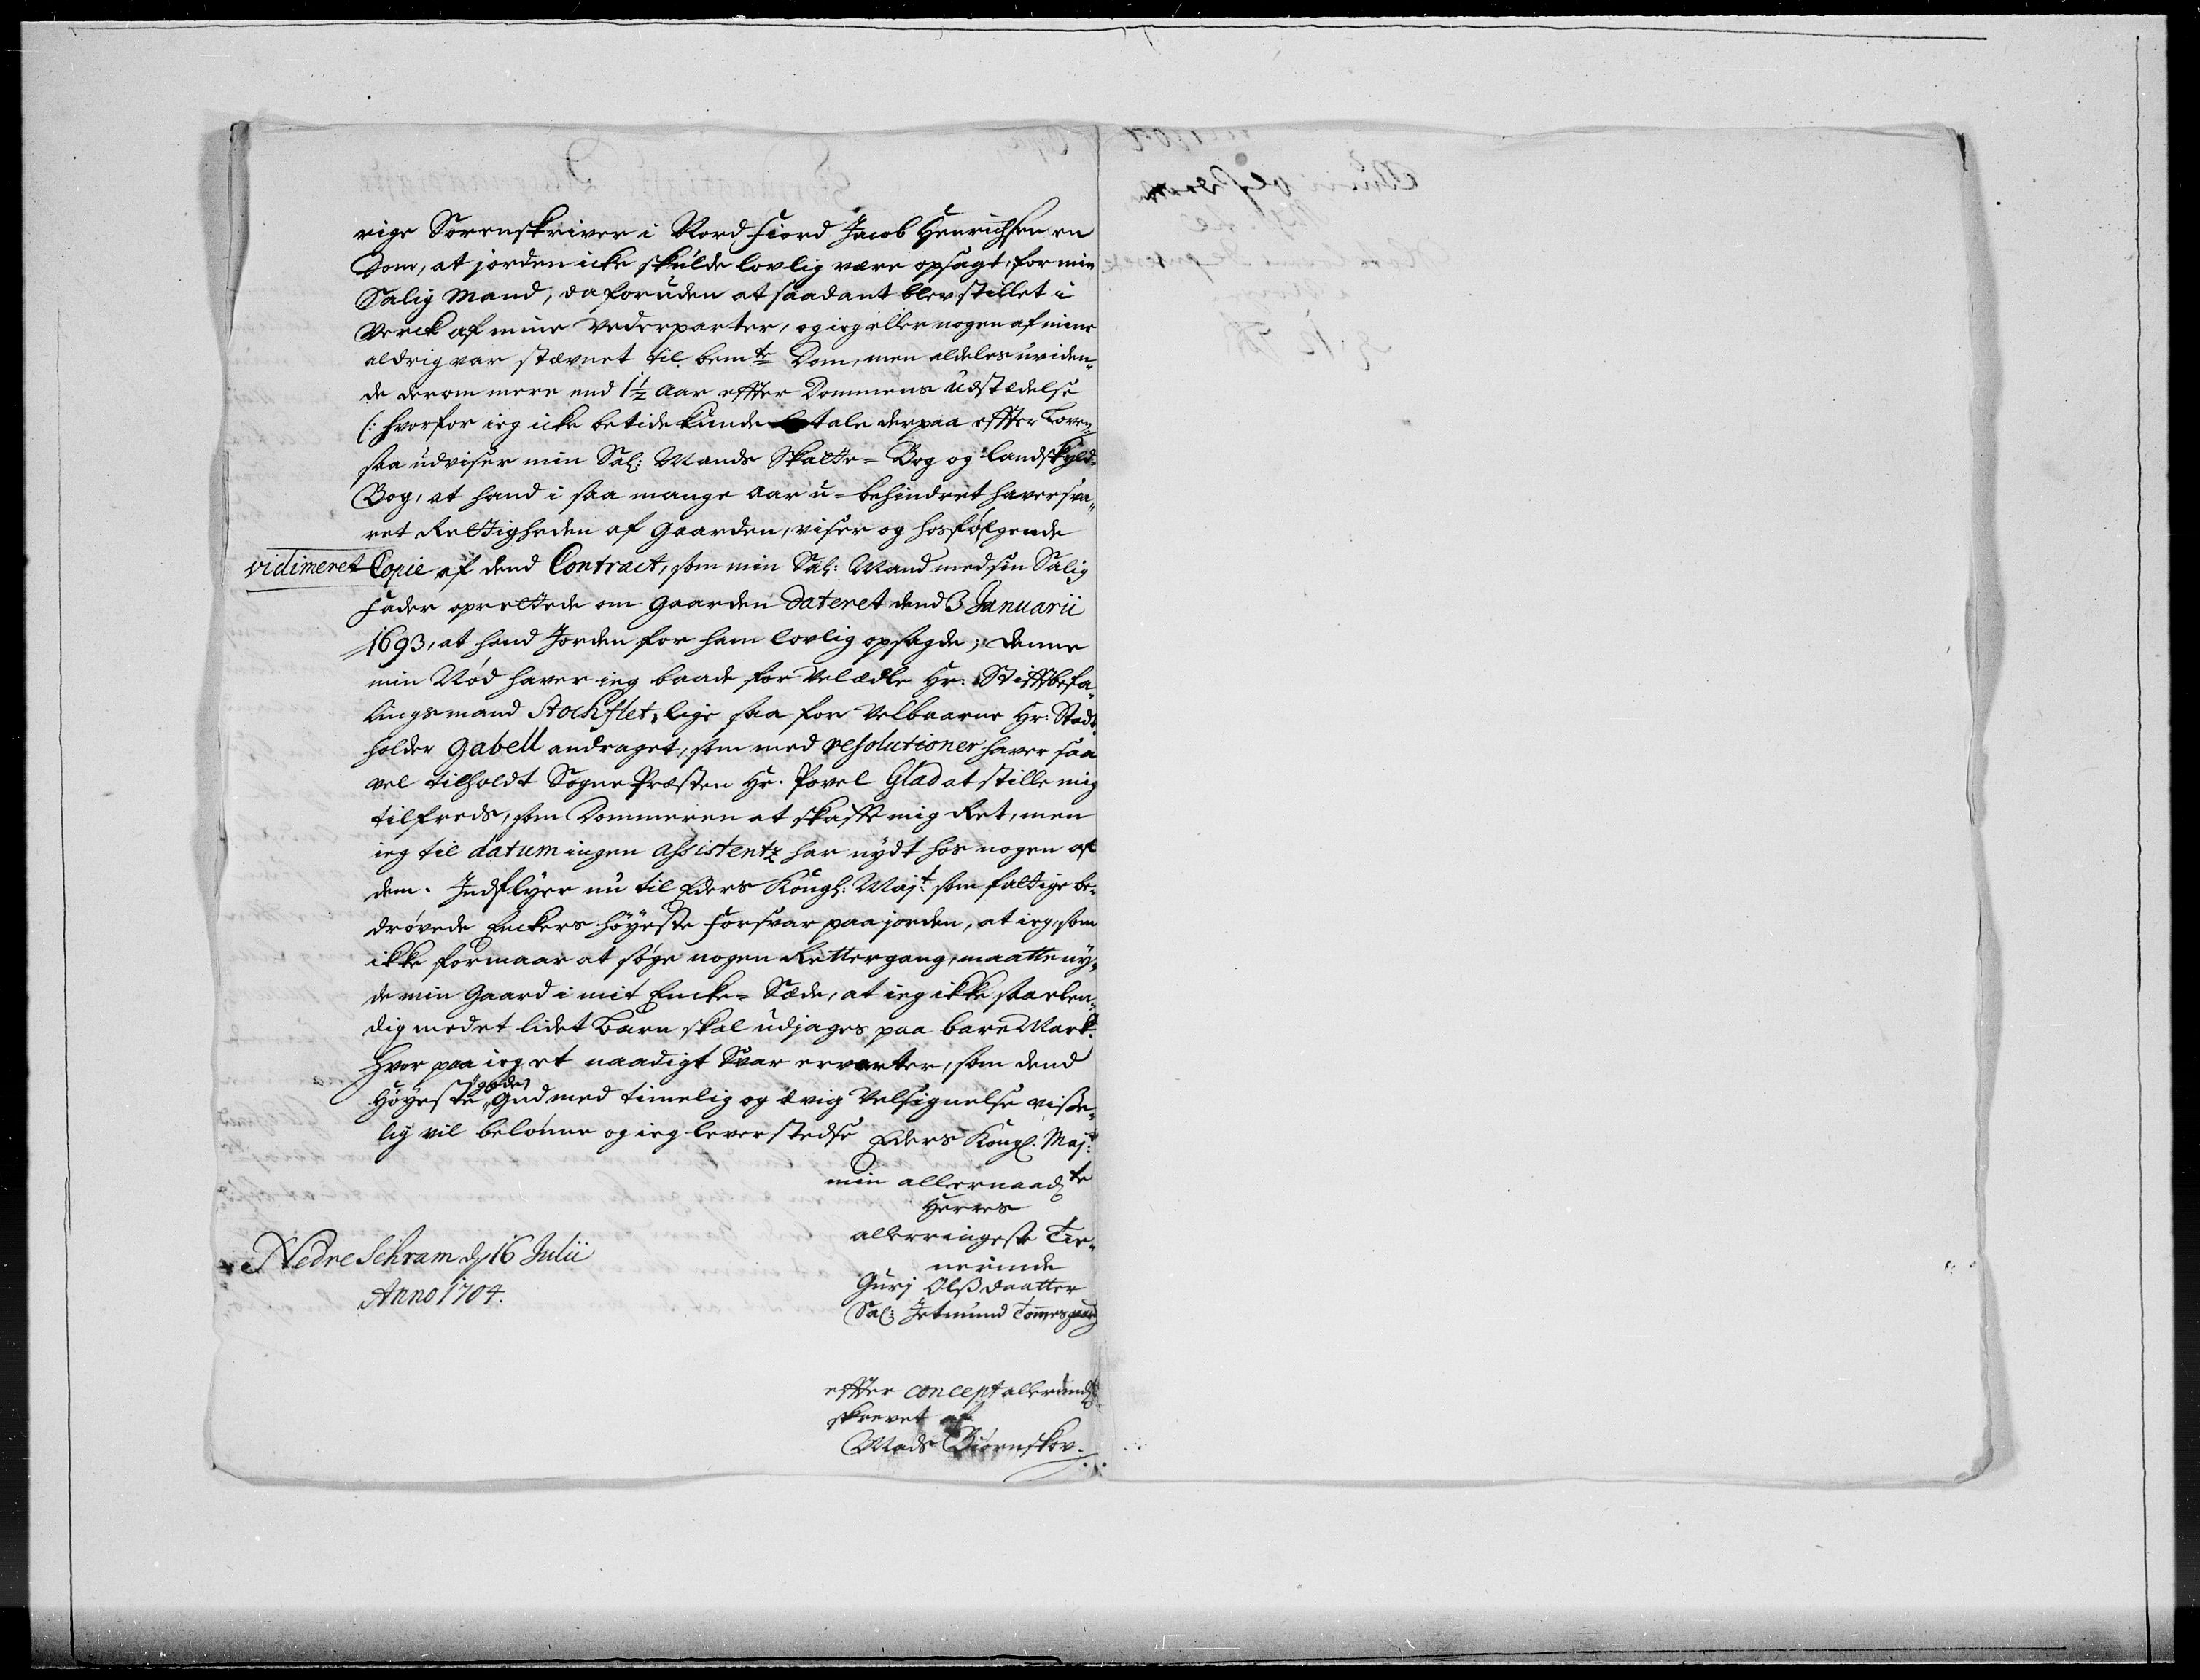 rige Sorenskriver i Nord Fiord Jacob Henrichsen en
Dom, at jorden icke skulde lovlig være opsagt, for min
Salig Mand, da foruden at saadant blev stillet i
Verck af mine Vederparter, og ieg eller nogen af mine
aldrig var stævnet til bemte Dom, men aldeles uviden„
de derom mere end 1½ Aar effter Dommens Udstædelse
(: hvorfor ieg icke betide kunde tale derpaa effter Loven
saa udviser min Sal: Mands Skatte= Bog og landskyld=
Bog, at hand i saa mange Aar u= behindret haver sva„
ret Rettigheden af Gaarden, viser og hosfølgende
vidimeret Copie af dend Contract, som min Sal: Mand med sin Salig
Fader oprettede om Gaarden Dateret dend 3 Januarii
1693, at hand Jorden for ham lovlig opsagde; Denne
min Nød haver ieg baade for Velædle Hr: Stifftbefa„
lingsmand Stockflet, lige saa for Velbaarne Hr: Stadt
holder Gabell andraget, som med resolutioner haver saa
vel tilholdt Sogne Præsten Hr. Povel Glad at stille mig
tilfreds, som Dommeren at skaffe mig Ret, men
ieg til datum ingen Assistentz har nydt hos nogen af
dem. Indflyer nu til Eders Kongl: Majt: som faltige be„
drøvede Enckers høyeste Forsvar paa jorden, at ieg, som
ikke formaar at søge nogen Rettergang, maatte ny„
de min Gaard i mit Encke= Sæde, at ieg ikke saa elen„
dig med et lidet Barn skal udjages paa bare Mark.
Hvor paa ieg et naadigt Svar ervarter, som dend
Høyeste Gud med timelig og ævig Velsignelse visse„
lig vil belønne og ieg lever stedse Eders Kongl. Majt:
min allernaadte
Herres
allerringeste Tie„
nerinde
Gurj Olßdaatter
Sal: Jetmund
Nedre Schram d. 16 Julii
Anno 1704.
effter concept allerund
skrevet af
Mads Biørnskov.